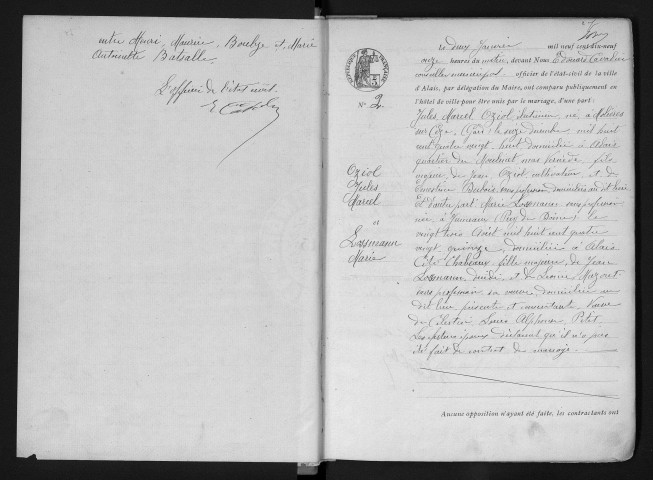 entre Henri, Maurice, Boulze et Marie
Antoinette Batialle.
L'officier de l'état civil
N° 2
Oziol
Jules
Marcel
et
Losmann
Marie
Le deux Janvier mil neuf cent dix-neuf
onze heures du matin, devant Nous, Edouard
conseiller municipal, officier de l'état-civil de la ville
d'Alais, par délégation du Maire, ont comparu publiquement en
l'hôtel de ville pour être unis par le mariage, d'une part:
Jules Marcel Oziol né à Molières
sur Cèze (Gard) le onze mil huit
cent quatre vingt huit domicilié à Alais
quartier du Moulinet fils
majeur de Jean Oziol cultivateur et de
Ernestine Dubois sans profession domiciliés au dit lieu
Et d'autre part Marie Losmann sans profession
née à Jumeaux (Puy de Dôme) le
vingt trois Août mil huit cent quatre
vingt quinze, domiciliée à Alais
fille majeure de Jean
Losmann, décédé, et de
sans profession sa veuve domiciliée au
dit lieu présente et consentante. Veuve
de Célestin Louis Alphonse Petit
Les futurs époux déclarent qu'il n'a pas
été fait de contrat de mariage.
Aucune opposition n'ayant été faite, les contractants ont